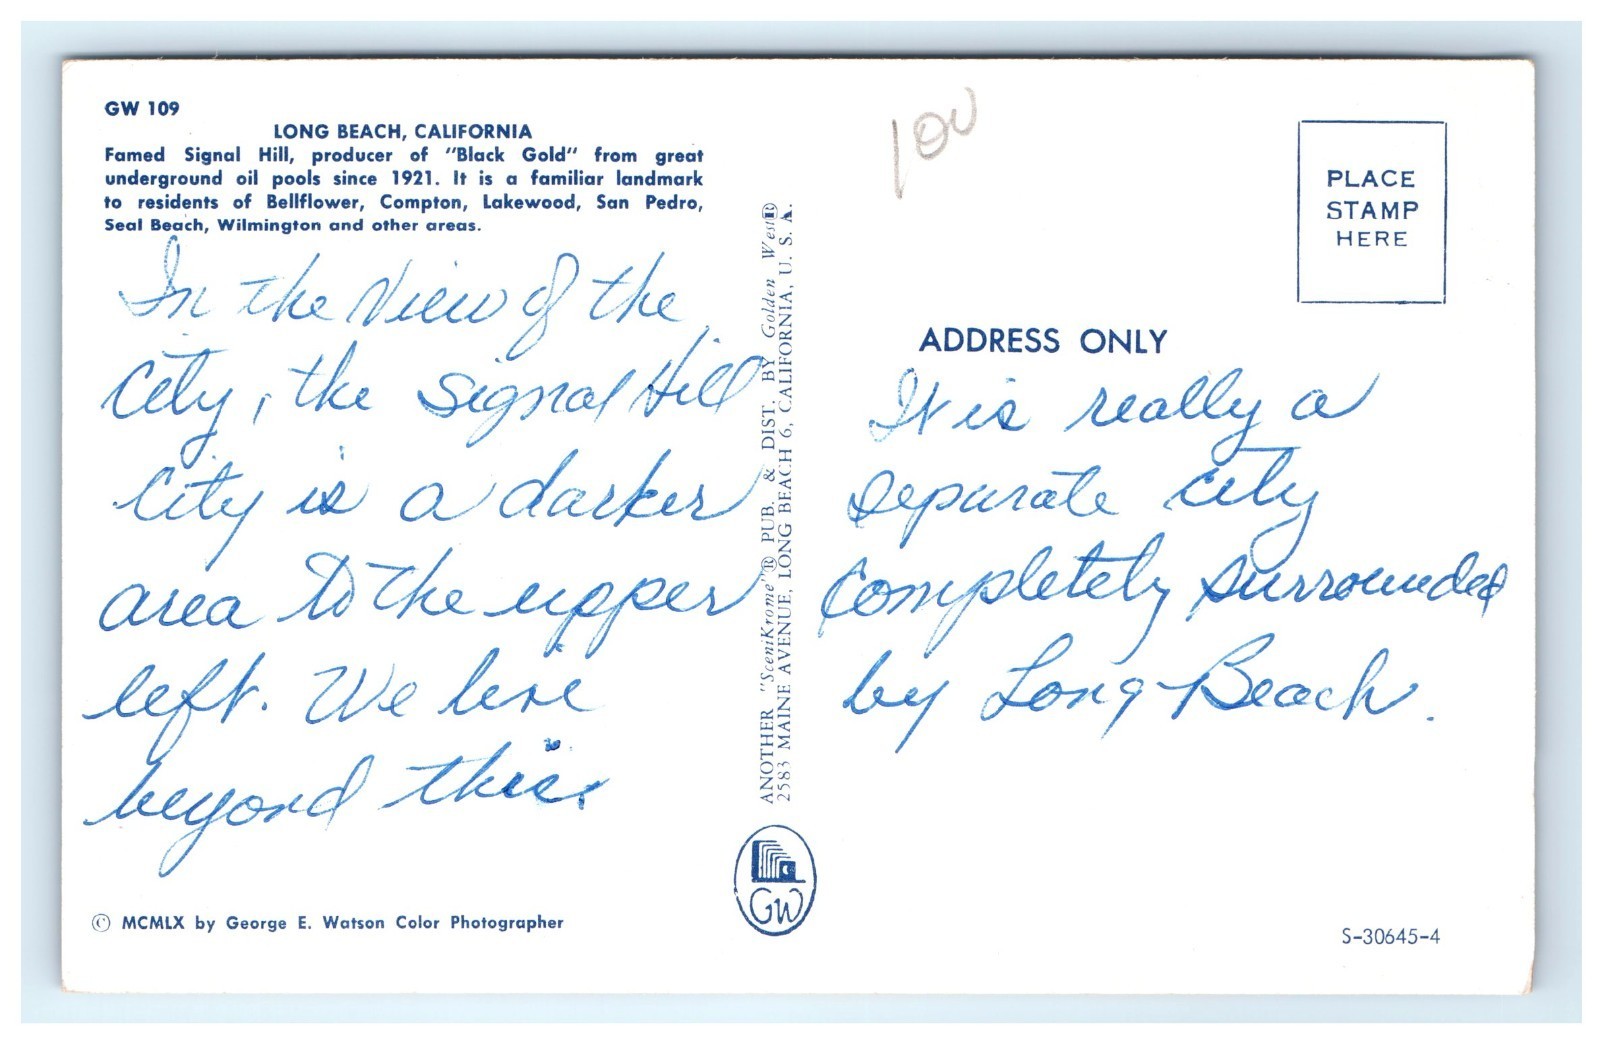 GW 109
LONG BEACH, CALIFORNIA
Famed Signal Hill, producer of "Black Gold" from great
underground oil pools since 1921. It is a familiar landmark
to residents of Bellflower, Compton, Lakewood, San Pedro,
Seal Beach, Wilmington and other areas.
In the View of the
City, the Signal Hill
City is a darker
area to the upper
left. We live
beyond this.
© MCMLX by George E. Watson Color Photographer
ANOTHER "SceniKrome"® PUB. & DIST. BY Golden West®
2583 MAINE AVENUE, LONG BEACH 6, CALIFORNIA, U. S. A.
GW
100
PLACE
STAMP
HERE
ADDRESS ONLY
It is really a
separate city
completely surrounded
by Long Beach.
S-30645-4